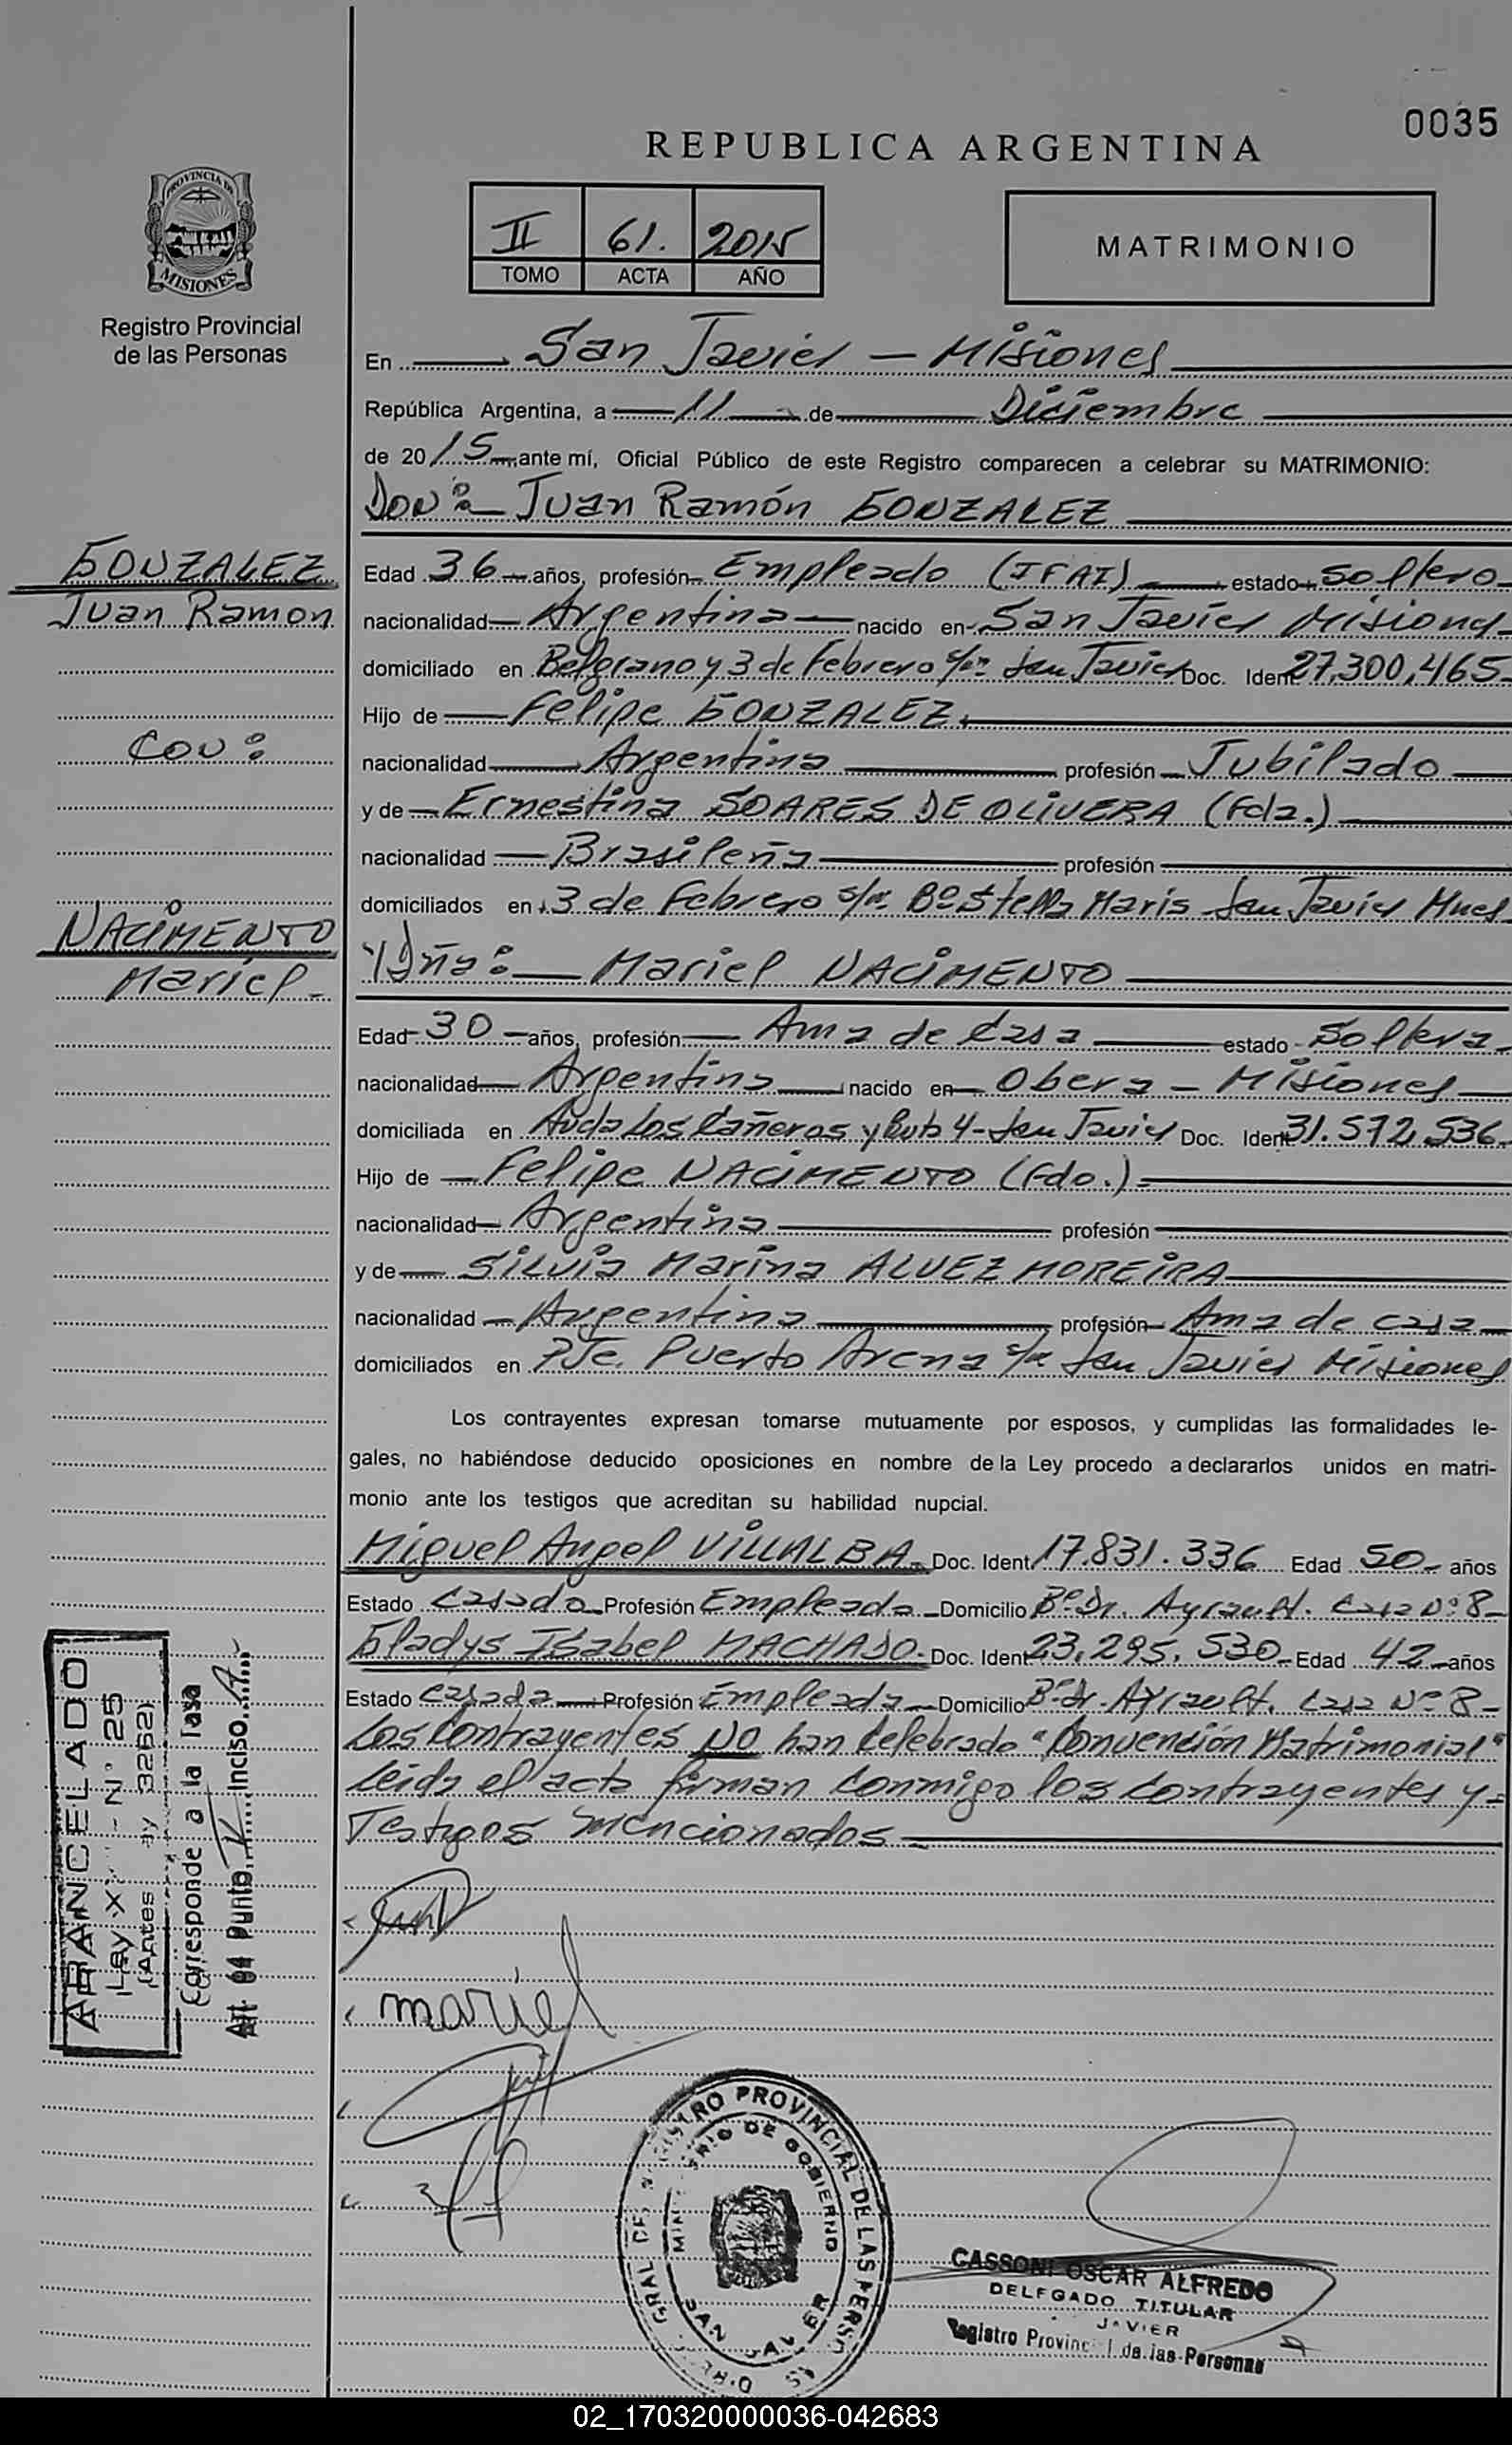 0035
REPUBLICA ARGENTINA
PROVINCIA DE
MISIONES
Registro Provincial
de las Personas
II 61. 2015
TOMO ACTA AÑO
MATRIMONIO
En San Javier - Misiones
República Argentina, a 11 de Diciembre
de 2015 ante mí, Oficial Público de este Registro comparecen a celebrar su MATRIMONIO:
Don: Juan Ramón GONZALEZ
GONZALEZ
Juan Ramon
Con:
NACIMENTO
Mariel
Edad 36 años, profesión Empleado (IFAI) estado Soltero
nacionalidad Argentina nacido en San Javier Misiones
domiciliado en Belgrano y 3 de Febrero s/n San Javier Doc. Ident 27,300,465
Hijo de Felipe GONZALEZ
nacionalidad Argentina profesión Jubilado
y de Ernestina SOARES DE OLIVERA (Fda.)
nacionalidad Brasileña profesión
domiciliados en 3 de Febrero s/n Bº Stella Maris San Javier Mnes
Y Dña: Mariel NACIMENTO
Edad 30 años, profesión Ama de Casa estado Soltera
nacionalidad Argentina nacido en Obera - Misiones
domiciliada en Avda Los Cañeros y Ruta 4 - San Javier Doc. Ident 31.572,536
Hijo de Felipe NACIMENTO (Fdo.)
nacionalidad Argentina profesión
y de Silvia Marina ALVEZ MOREIRA
nacionalidad Argentina profesión Ama de casa
domiciliados en Pje. Puerto Arena s/n San Javier Misiones
Los contrayentes expresan tomarse mutuamente por esposos, y cumplidas las formalidades le-
gales, no habiéndose deducido oposiciones en nombre de la Ley procedo a declararlos unidos en matri-
monio ante los testigos que acreditan su habilidad nupcial.
Miguel Angel VILLALBA Doc. Ident. 17.831.336 Edad 50 años
Estado Casado Profesión Empleado Domicilio Bº Dr. Ayrault. Casa Nº 8
Gladys Isabel MACHADO. Doc. Ident 23,295,530 Edad 42 años
Estado casada Profesión Empleada Domicilio Bº Dr. Ayrault. Casa Nº 8
Los Contrayentes NO han Celebrado "Convención Matrimonial"
Leida el acta firman Conmigo los Contrayentes y
Testigos mencionados
ARANCELADO
Ley X - Nº 25
(Antes 3252)
Corresponde a la Tasa
Art. 04 Punto Inciso A
mariel
PROVINCIAL DE LAS PERSO
DE GOBIERNO
SAN JAVIER
CASSONI OSCAR ALFREDO
DELEGADO TITULAR
JAVIER
Registro Provincial de las Personas
02_170320000036-042683